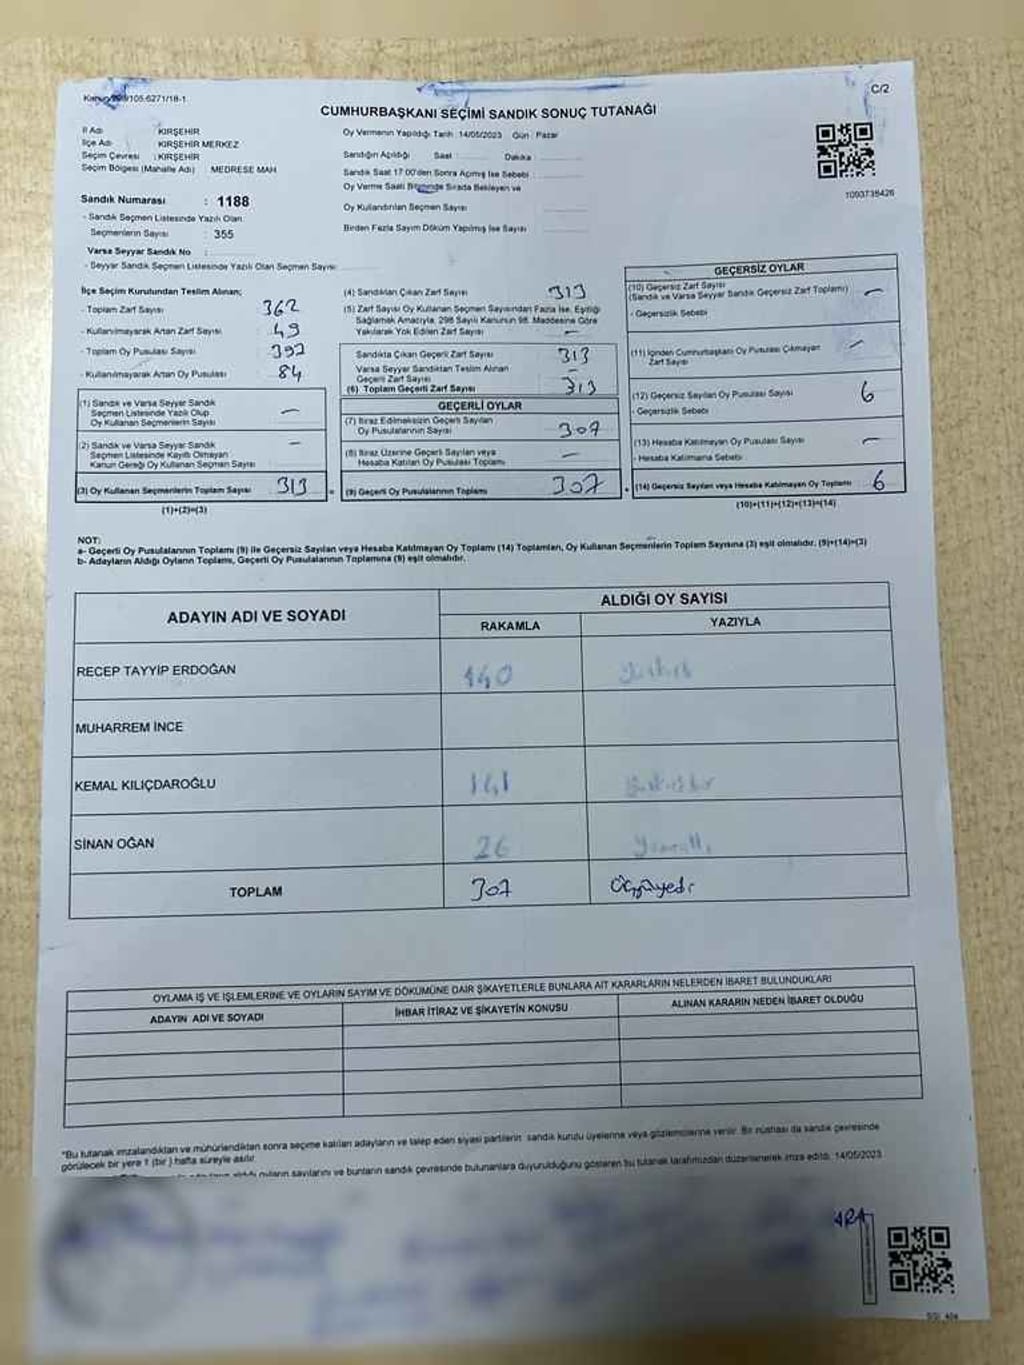 C/2
CUMHURBAŞKANI SEÇİMİ SANDIK SONUÇ TUTANAĞI
İl Adı : KIRŞEHİR
İlçe Adı : KIRŞEHİR MERKEZ
Seçim Çevresi : KIRŞEHİR
Seçim Bölgesi (Mahalle Adı) : MEDRESE MAH
Sandık Numarası : 1188
- Sandık Seçmen Listesinde Yazılı Olan
Seçmenlerin Sayısı : 355
Varsa Seyyar Sandık No :
- Seyyar Sandık Seçmen Listesinde Yazılı Olan Seçmen Sayısı:
Oy Vermenin Yapıldığı Tarih :14/05/2023 Gün : Pazar
Sandığın Açıldığı Saat Dakika
Sandık Saat 17:00'den Sonra Açılmış İse Sebebi :
Oy Verme Saati Bitiminde Sırada Bekleyen ve
Oy Kullandırılan Seçmen Sayısı
Birden Fazla Sayım Döküm Yapılmış İse Sayısı
1093738426
İlçe Seçim Kurulundan Teslim Alınan;
- Toplam Zarf Sayısı : 362
- Kullanılmayarak Artan Zarf Sayısı : 49
- Toplam Oy Pusulası Sayısı : 392
- Kullanılmayarak Artan Oy Pusulası : 84
(1) Sandık ve Varsa Seyyar Sandık
Seçmen Listesinde Yazılı Olup
Oy Kullanan Seçmenlerin Sayısı —
(2) Sandık ve Varsa Seyyar Sandık
Seçmen Listesinde Kayıtlı Olmayan
Kanun Gereği Oy Kullanan Seçmen Sayısı —
(3) Oy Kullanan Seçmenlerin Toplam Sayısı 313
(1)+(2)=(3)
(4) Sandıktan Çıkan Zarf Sayısı 313
(5) Zarf Sayısı Oy Kullanan Seçmen Sayısından Fazla İse, Eşitliği
Sağlamak Amacıyla, 298 Sayılı Kanunun 98. Maddesine Göre
Yakılarak Yok Edilen Zarf Sayısı —
Sandıkta Çıkan Geçerli Zarf Sayısı 313
Varsa Seyyar Sandıktan Teslim Alınan
Geçerli Zarf Sayısı —
(6) Toplam Geçerli Zarf Sayısı 313
GEÇERLİ OYLAR
(7) İtiraz Edilmeksizin Geçerli Sayılan
Oy Pusulalarının Sayısı 307
(8) İtiraz Üzerine Geçerli Sayılan veya
Hesaba Katılan Oy Pusulası Toplamı —
(9) Geçerli Oy Pusulalarının Toplamı 307
GEÇERSİZ OYLAR
(10) Geçersiz Zarf Sayısı
(Sandık ve Varsa Seyyar Sandık Geçersiz Zarf Toplamı) —
- Geçersizlik Sebebi
(11) İçinden Cumhurbaşkanı Oy Pusulası Çıkmayan
Zarf Sayısı —
(12) Geçersiz Sayılan Oy Pusulası Sayısı 6
- Geçersizlik Sebebi
(13) Hesaba Katılmayan Oy Pusulası Sayısı —
- Hesaba Katılmama Sebebi
(14) Geçersiz Sayılan veya Hesaba Katılmayan Oy Toplamı 6
(10)+(11)+(12)+(13)=(14)
NOT:
a- Geçerli Oy Pusulalarının Toplamı (9) ile Geçersiz Sayılan veya Hesaba Katılmayan Oy Toplamı (14) Toplamları, Oy Kullanan Seçmenlerin Toplam Sayısına (3) eşit olmalıdır. (9)+(14)=(3)
b- Adayların Aldığı Oyların Toplamı, Geçerli Oy Pusulalarının Toplamına (9) eşit olmalıdır.
ADAYIN ADI VE SOYADI
ALDIĞI OY SAYISI
RAKAMLA YAZIYLA
RECEP TAYYİP ERDOĞAN 140
MUHARREM İNCE
KEMAL KILIÇDAROĞLU 141
SİNAN OĞAN 26
TOPLAM 307 Üçyüzyedi
OYLAMA İŞ VE İŞLEMLERİNE VE OYLARIN SAYIM VE DÖKÜMÜNE DAİR ŞİKAYETLERLE BUNLARA AİT KARARLARIN NELERDEN İBARET BULUNDUKLARI
ADAYIN ADI VE SOYADI İHBAR İTİRAZ VE ŞİKAYETİN KONUSU ALINAN KARARIN NEDEN İBARET OLDUĞU
*Bu tutanak imzalandıktan ve mühürlendikten sonra seçime katılan adayların ve talep eden siyasi partilerin sandık kurulu üyelerine veya gözlemcilerine verilir. Bir nüshası da sandık çevresinde
görülecek bir yere 1 (bir) hafta süreyle asılır.
oyların sayılarını ve bunların sandık çevresinde bulunanlara duyurulduğunu gösteren bu tutanak tarafımızdan düzenlenerek imza edildi. 14/05/2023